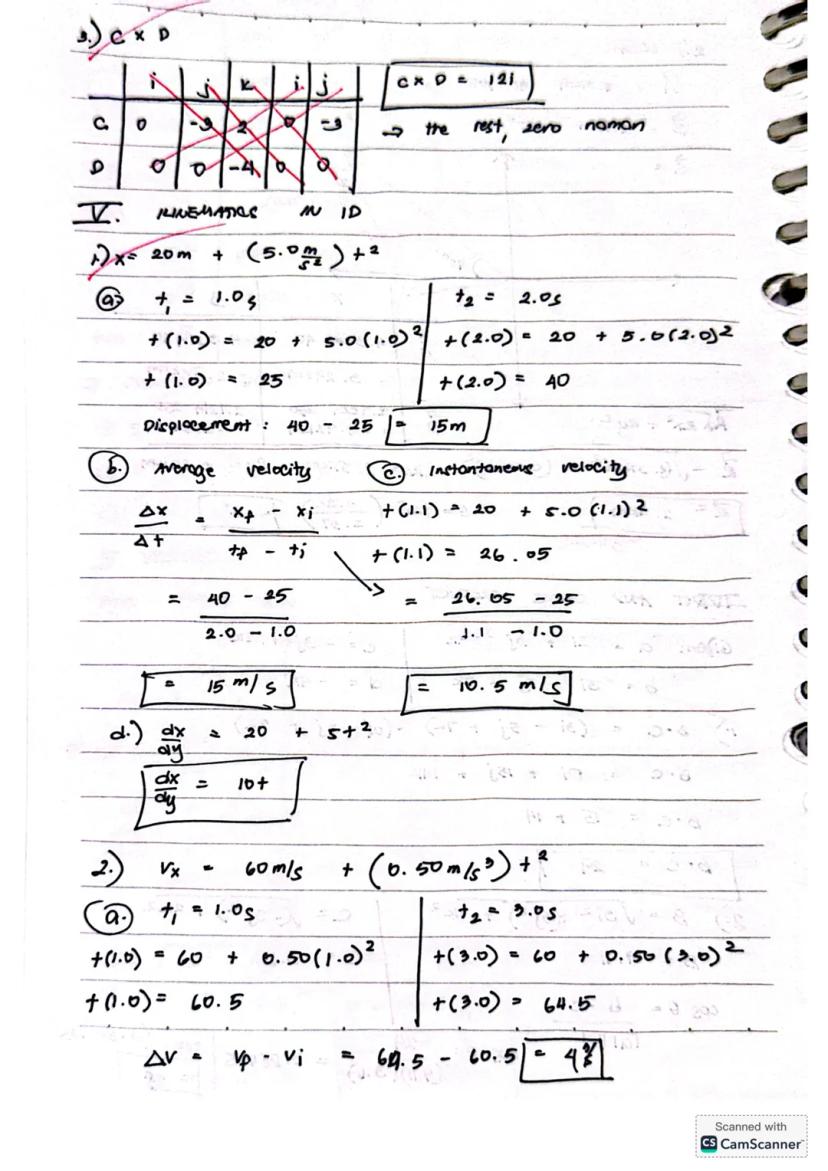 3.) C x D
i j k i j
C 0 -3 2 0 -3
D 0 0 -4 0 0
C x D = 12i
→ the rest, zero naman
V. KINEMATICS IN 1D
1.) x = 20m + (5.0 m/s²) t²
(a) t₁ = 1.0s
t(1.0) = 20 + 5.0(1.0)²
t(1.0) = 25
t₂ = 2.0s
t(2.0) = 20 + 5.0(2.0)²
t(2.0) = 40
Displacement : 40 - 25 = 15m
(b.) Average velocity
Δx/Δt = xf - xi / tf - ti
= 40 - 25 / 2.0 - 1.0
= 15 m/s
(c.) Instantaneous velocity
t(1.1) = 20 + 5.0 (1.1)²
t(1.1) = 26.05
= 26.05 - 25 / 1.1 - 1.0
= 10.5 m/s
d.) dx/dy = 20 + 5t²
dx/dy = 10t
2.) Vx = 60m/s + (0.50 m/s³) t²
(a.) t₁ = 1.0s
t(1.0) = 60 + 0.50(1.0)²
t(1.0) = 60.5
t₂ = 3.0s
t(3.0) = 60 + 0.50 (3.0)²
t(3.0) = 64.5
Δv = vf - vi = 64.5 - 60.5 = 4
Scanned with
CS CamScanner